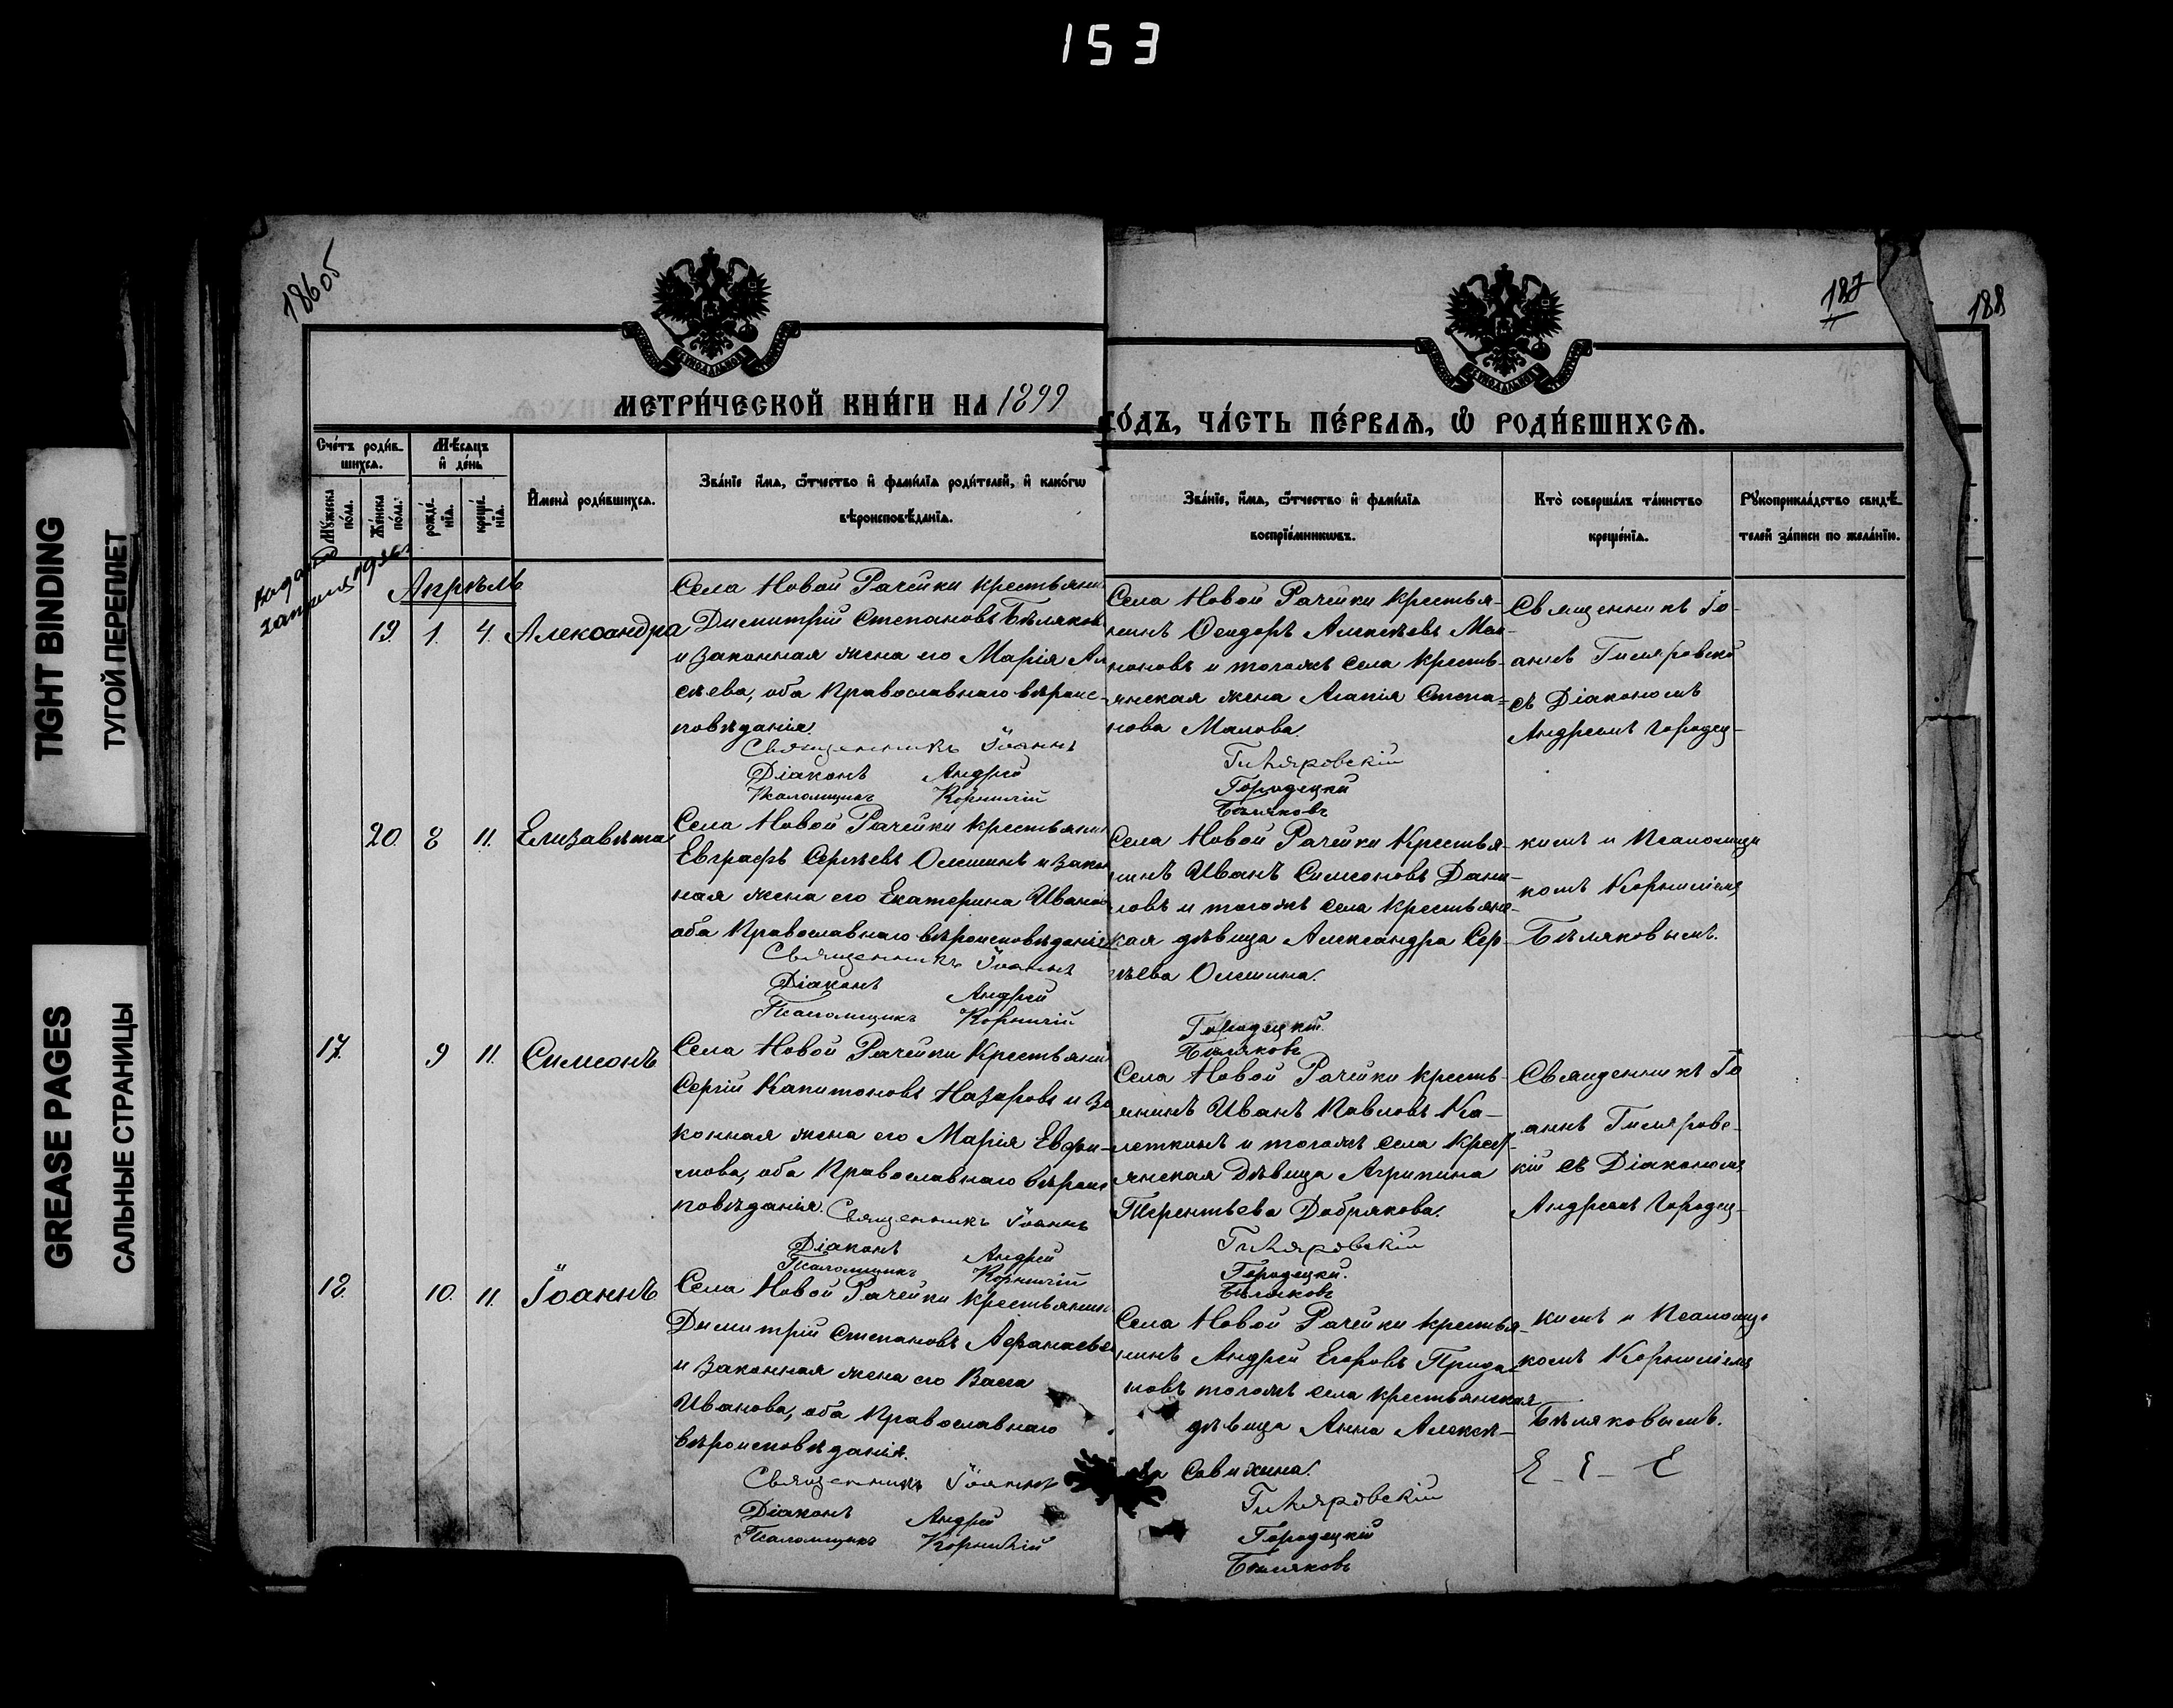 153
186об
187
188
TIGHT BINDING
ТУГОЙ ПЕРЕПЛЕТ
GREASE PAGES
САЛЬНЫЕ СТРАНИЦЫ
МЕТРИ́ЧЕСКОЙ КНИ́ГИ НА 1899
ГО́ДЪ, ЧА́СТЬ ПЕ́РВАѦ, Ѽ РОДИ́ВШИХСѦ.
Сче́тъ роди́в-
шихсѧ.
Мѣ́сѧцъ
и҆ де́нь
Мꙋ́жеска по́ла.
Же́нска по́ла.
рожде́нїѧ.
креще́нїѧ.
И҆мена̀ роди́вшихсѧ.
Зва́нїе и҆́мѧ, ѻ҆́тчество и҆ фами́лїѧ роди́телей, и҆ како́гѡ
вѣроисповѣ́данїѧ.
Зва́нїе, и҆́мѧ, ѻ҆́тчество и҆ фами́лїѧ
воспрїе́мникѡвъ.
Кто̀ соверша́лъ та́инство
креще́нїѧ.
Рꙋкоприкла́дство свидѣ́-
телей за́писи по жела́нїю.
Апрѣль
19 1. 4. Александра
Села Новой Рачейки крестьянин
Димитрій Степановъ Бѣляков
и законная жена его Марія Ал
сѣева, оба Православнаго вѣроис-
повѣданія.
Священникъ Іоаннъ
Діаконъ Андрей
Псаломщикъ Корнилій
Села Новой Рачейки крестья-
нинъ Ѳеодоръ Алексѣевъ
и тогожъ села кресть-
янская жена Агапія Степа-
нова Малова.
Гиляровскій
Городецкій
Бѣляковъ
Священникъ Іо-
аннъ Гиляровскій
съ Діакономъ
Андреемъ Городец-
20 8 11. Елизавета
Села Новой Рачейки крестьянин
Евграфъ Сергѣевъ Олешинъ и закон
ная жена его Екатерина Иванов
оба Православнаго вѣроисповѣданія
Священникъ Іоаннъ
Діаконъ Андрей
Псаломщикъ Корнилій
Села Новой Рачейки Крестья-
нинъ Иванъ Симеоновъ Дани-
ловъ и тогожъ села крестьянс-
кая дѣвица Александра Сер-
гѣева Олешина.
Городецкій.
Бѣляковъ
кимъ и Псаломщи
комъ Корниліемъ
Бѣляковымъ.
17. 9 11. Симеонъ
Села Новой Рачейки Крестьянин
Сергій Капитоновъ Назаровъ и за
конная жена его Марія Евфи-
мова, оба Православнаго вѣроис
повѣданія. Священникъ Іоаннъ
Діаконъ Андрей
Псаломщикъ Корнилій
Села Новой Рачейки кресть-
янинъ Иванъ Павловъ Ка-
леткинъ и тогожъ села крест
янская Дѣвица Агрипина
Терентьева Добрякова.
Гиляровскій
Городецкій.
Бѣляковъ
Священникъ Іо
аннъ Гиляровс-
кій съ Діакономъ
Андреемъ Городец-
18. 10. 11. Іоаннъ
Села Новой Рачейки крестьянин
Димитрій Степановъ Афанасьев
и законная жена его Васса
Иванова, оба Православнаго
вѣроисповѣданія.
Священникъ Іоаннъ
Діаконъ Андрей
Псаломщикъ Корнилій
Села Новой Рачейки крестья-
нинъ Андрей Егоровъ
тогожъ села крестьянская
дѣвица Анна Алексѣ-
Савихина.
Гиляровскій
Городецкій
Бѣляковъ
кимъ и Псаломщи
комъ Корниліемъ
Бѣляковымъ.